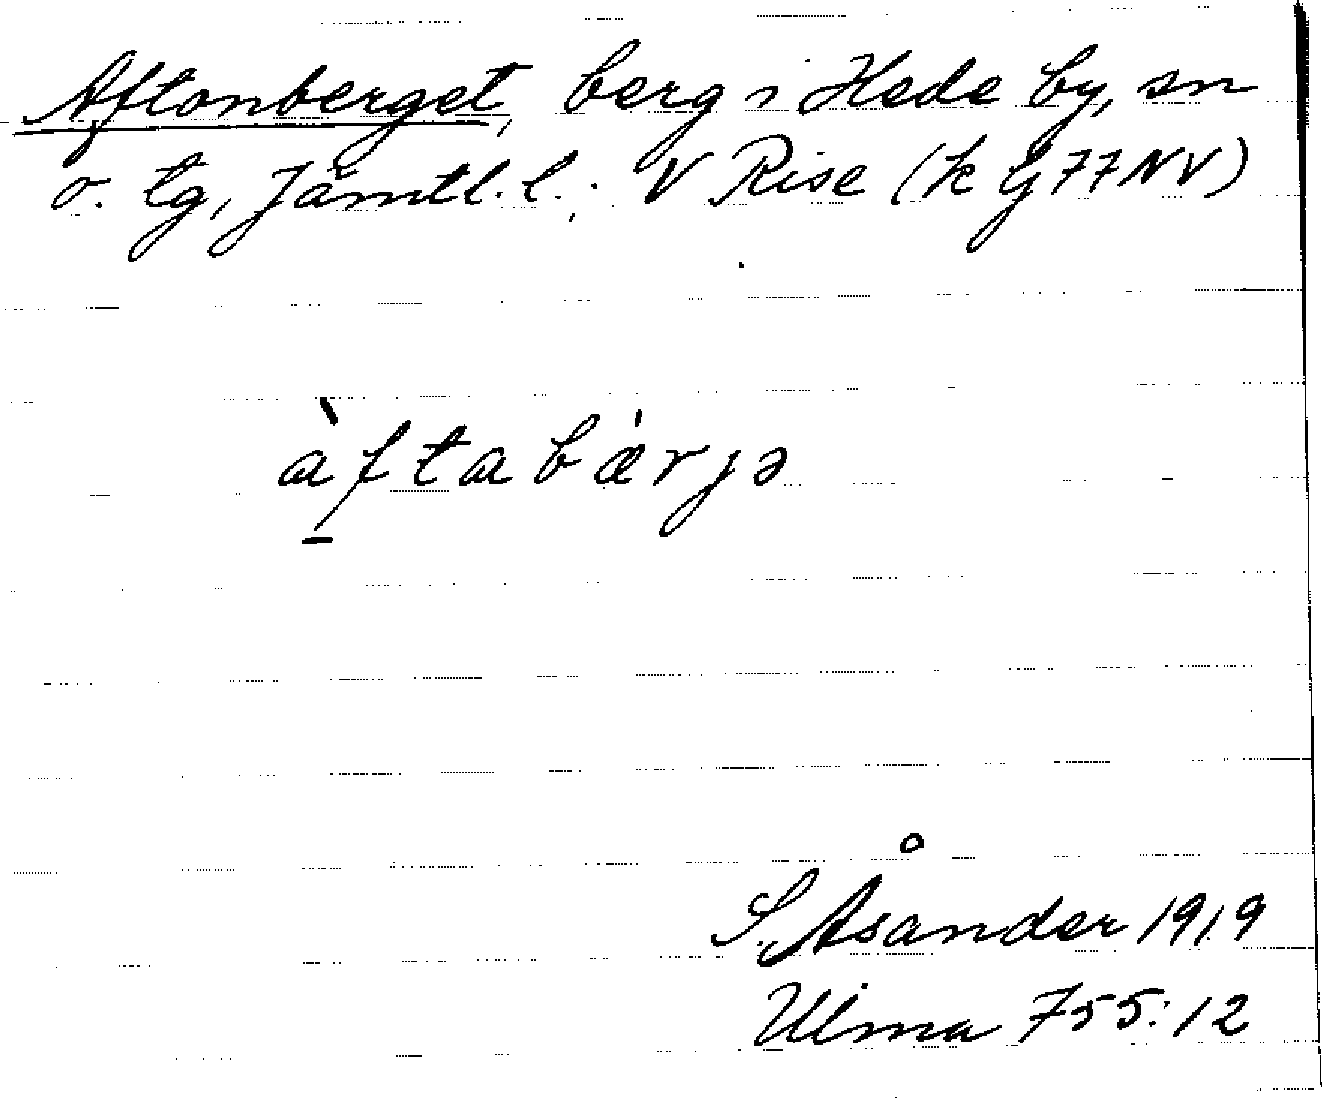 Aftonberget, berg i Hede by, sn
o. tg, Jämtl. l.; V Rise (k G 77 NV)
àftabǽrjə
S. Åsander 1919
Ulma 755:12